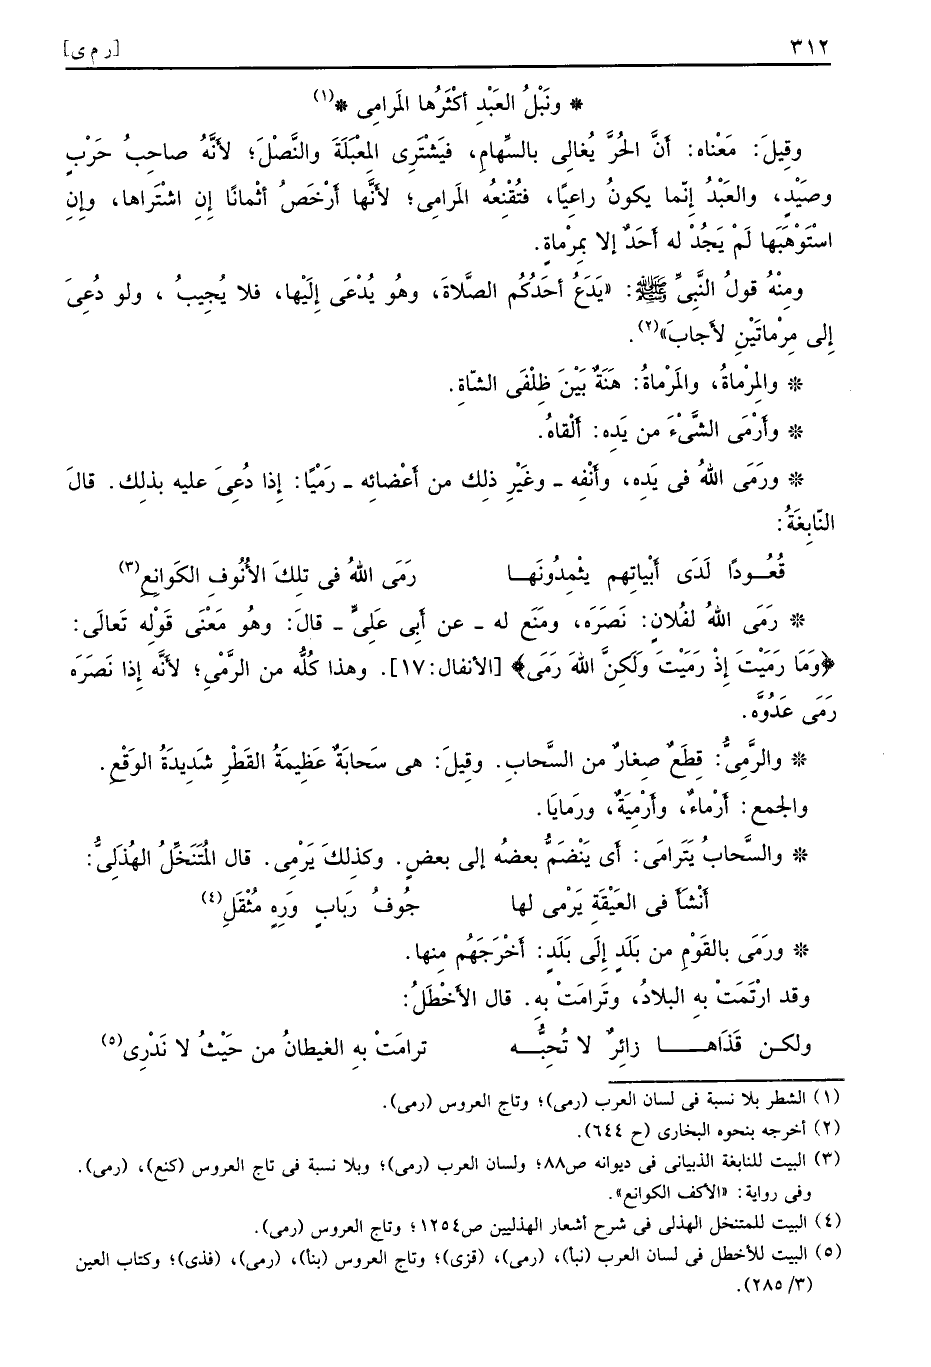 ٣١٢ [ر م ى]
* ونَبْلُ العَبْدِ أكْثَرُها المَرامِى *(١)
وقِيلَ: مَعْناه: أنَّ الحُرَّ يُغالِى بالسِّهامِ، فيَشْتَرِى المِعْبَلَةَ والنَّصْلَ؛ لأنَّهُ صاحِبُ حَرْبٍ
وصَيْدٍ، والعَبْدُ إنّما يكونُ راعِيًا، فتُقْنِعُه المَرامِى؛ لأنَّها أرْخَصُ أثْمانًا إنِ اشْتَراها، وإنِ
اسْتَوْهَبَها لَمْ يَجُدْ له أحَدٌ إلا بِمِرْماةٍ.
ومِنْهُ قولُ النَّبِىِّ ﷺ: «يَدَعُ أحَدُكُم الصَّلاةَ، وهُو يُدْعَى إلَيْها، فلا يُجِيبُ، ولو دُعِىَ
إلى مِرْماتَيْنِ لأجابَ»(٢).
* والمِرْماةُ، والمَرْماةُ: هَنَةٌ بَيْنَ ظِلْفَىِ الشّاةِ.
* وأرْمَى الشَّىْءَ من يَدِه: ألْقاهُ.
* ورَمَى اللهُ فى يَدِه، وأنْفِه ـ وغَيْرِ ذلك من أعْضائِه ـ رَمْيًا: إذا دُعِىَ عليه بذلِك. قالَ
النّابِغَةُ:
قُعُـودًا لَدَى أبْياتِهِم يَثْمِدُونَهـا رَمَى اللهُ فى تِلكَ الأُنُوفِ الكَوانِعِ(٣)
* رَمَى اللهُ لفُلانٍ: نَصَرَه، ومَنَع له ـ عن أبِى علىٍّ ـ قالَ: وهُو مَعْنَى قَوْلِه تَعالَى:
﴿وَمَا رَمَيْتَ إذْ رَمَيْتَ وَلَكِنَّ اللهَ رَمَى﴾ [الأنفال: ١٧]. وهذا كُلُّه من الرَّمْىِ؛ لأنَّه إذا نَصَرَه
رَمَى عَدُوَّه.
* والرَّمِىُّ: قِطَعٌ صِغارٌ من السَّحابِ. وقِيلَ: هى سَحابَةٌ عَظِيمَةُ القَطْرِ شَدِيدَةُ الوَقْعِ.
والجمع: أرْماءٌ، وأرْمِيَةٌ، ورَمايَا.
* والسَّحابُ يَتَرامَى: أى يَنْضَمُّ بعضُه إلى بعضٍ. وكذلِكَ يَرْمِى. قال المُتَنَخِّلُ الهُذَلِىُّ:
أنْشَأَ فى العَيْقَةِ يَرْمِى لها جُوفُ رَبابٍ وَرِهٍ مُثْقَلِ(٤)
* ورَمَى بالقَوْمِ من بَلَدٍ إلَى بَلَدٍ: أخْرَجَهُم مِنها.
وقد ارْتَمَتْ بِهِ البلادُ، وتَرامَتْ بِهِ. قال الأخْطَلُ:
ولكـن قَذَاهـــا زائِرٌ لا تُحِبُّــه ترامَتْ بِهِ الغيطانُ من حَيْثُ لا نَدْرِى(٥)
(١) الشطر بلا نسبة فى لسان العرب (رمى)؛ وتاج العروس (رمى).
(٢) أخرجه بنحوه البخارى (ح ٦٤٤).
(٣) البيت للنابغة الذبيانى فى ديوانه ص٨٨؛ ولسان العرب (رمى)؛ وبلا نسبة فى تاج العروس (كنع)، (رمى).
وفى رواية: «الأكف الكوانع».
(٤) البيت للمتنخل الهذلى فى شرح أشعار الهذليين ص١٢٥٤؛ وتاج العروس (رمى).
(٥) البيت للأخطل فى لسان العرب (نبأ)، (رمى)، (قزى)؛ وتاج العروس (بنأ)، (رمى)، (فذى)؛ وكتاب العين
(٣/ ٢٨٥).